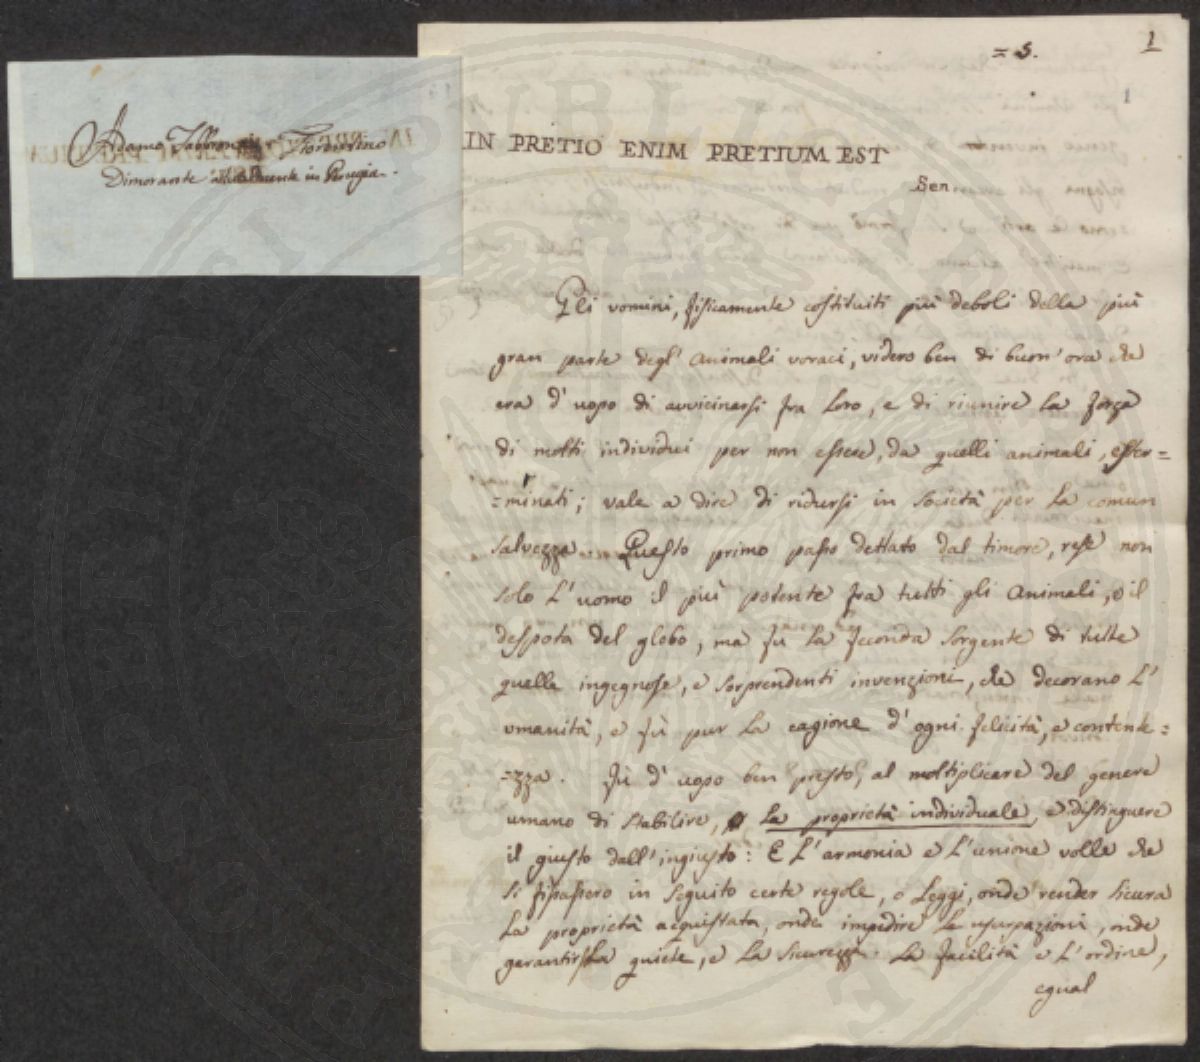 = 5.
1
1
Adamo Fabbroni Fiorentino
Dimorante attualmente in Perugia.
IN PRETIO ENIM PRETIUM EST
Sen
Gli vomini, fisicamente costituiti più deboli della più
gran parte degl' animali voraci, videro ben di buon' ora che
era d' uopo di avvicinarsi fra Loro, e di riunire La forza
di molti individui per non essere, da quelli animali, ester=
=minati; vale a dire di ridursi in Società per La comun
salvezza. Questo primo passo dettato dal timore, rese non
solo L' uomo il più potente fra tutti gli animali, o il
despota del globo, ma fù La feconda sorgente di tutte
quelle ingegnose, e sorprendenti invenzioni, che decorano L'
vmanità, e fù pur La cagione d' ogni felicità, e contente=
=zza. Fù d' uopo ben presto, al moltiplicare del genere
umano di stabilire, La proprietà individuale, e distinguere
il giusto dall' ingiusto: E L' armonia e L' unione volle che
si fissassero in seguito certe regole, o Leggi, onde render sicura
La proprietà acquistata, onde impedire Le usurpazioni, onde
garantir La quiete, e La sicurezza. La facilità e L' ordine,
egual